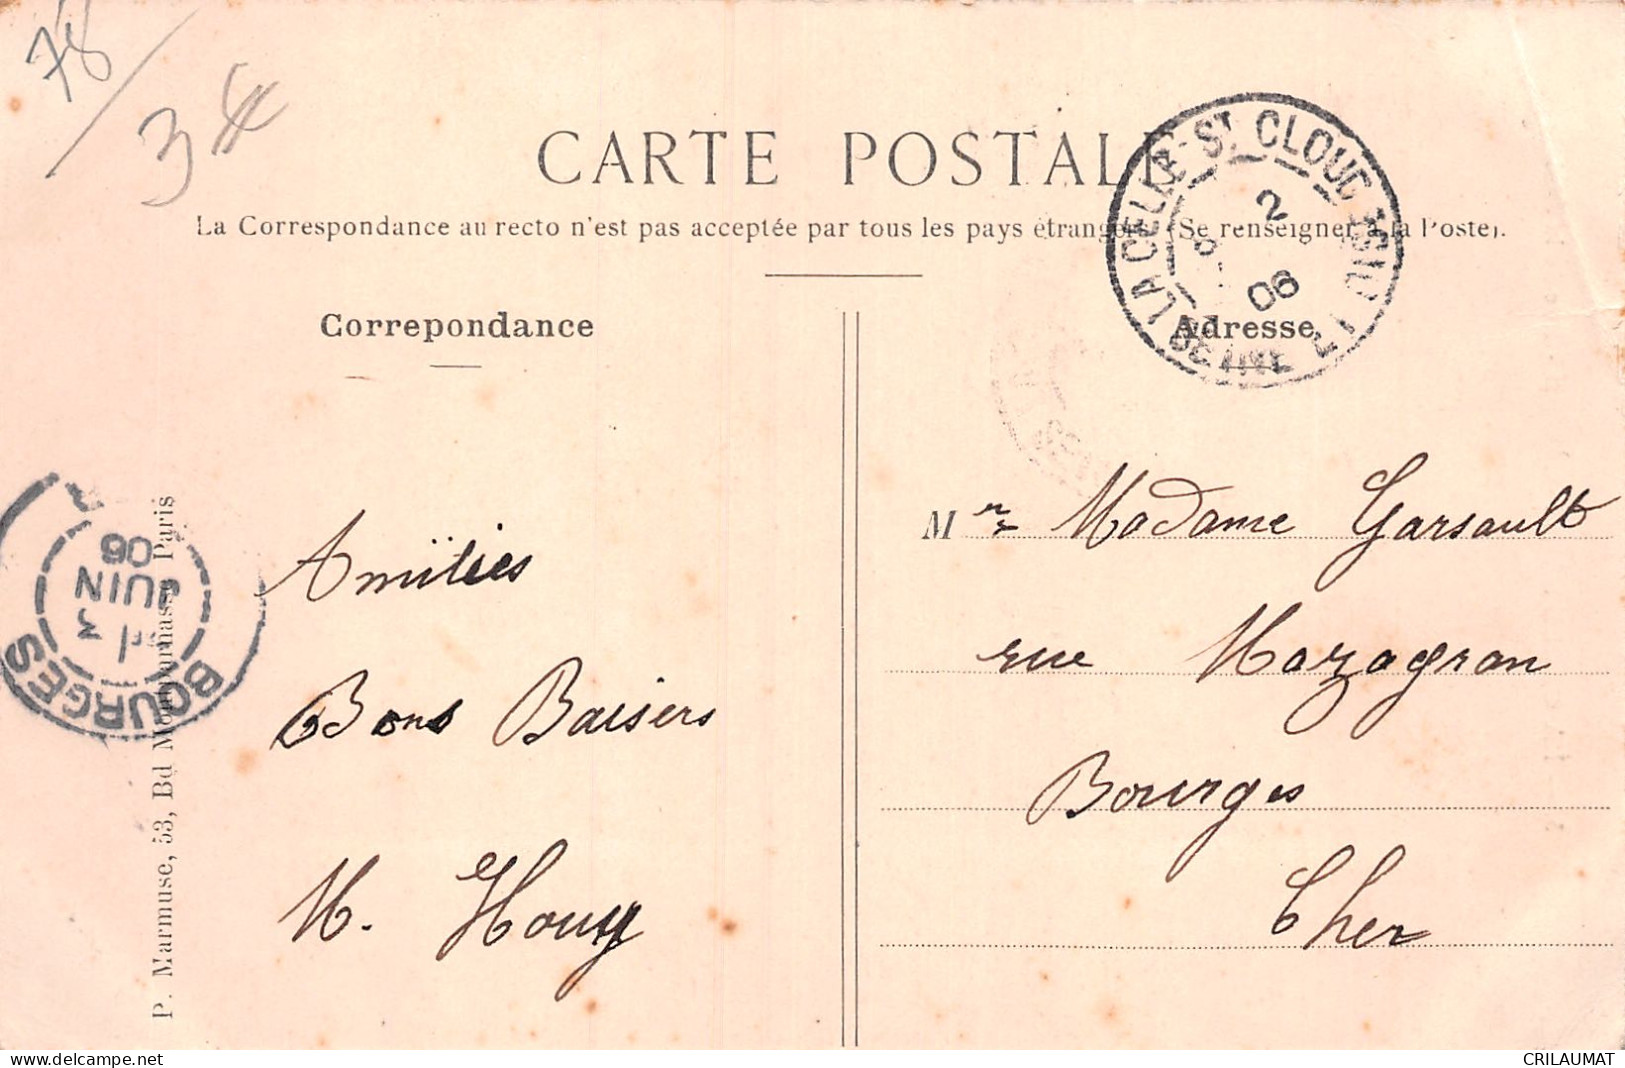 78
3€
CARTE POSTALE
La Correspondance au recto n'est pas acceptée par tous les pays étrangers (Se renseigner à la Poste).
Correpondance
Adresse
LA CELLE-ST CLOUD
SEINE ET
2
06
Amitiés
Bons Baisers
M. Houy
M Madame Garsault
rue Mazagran
Bourges
Cher
BOURGES
3
JUIN
06
P. Marmuse, 53, Bd Montparnasse Paris
www.delcampe.net
CRILAUMAT